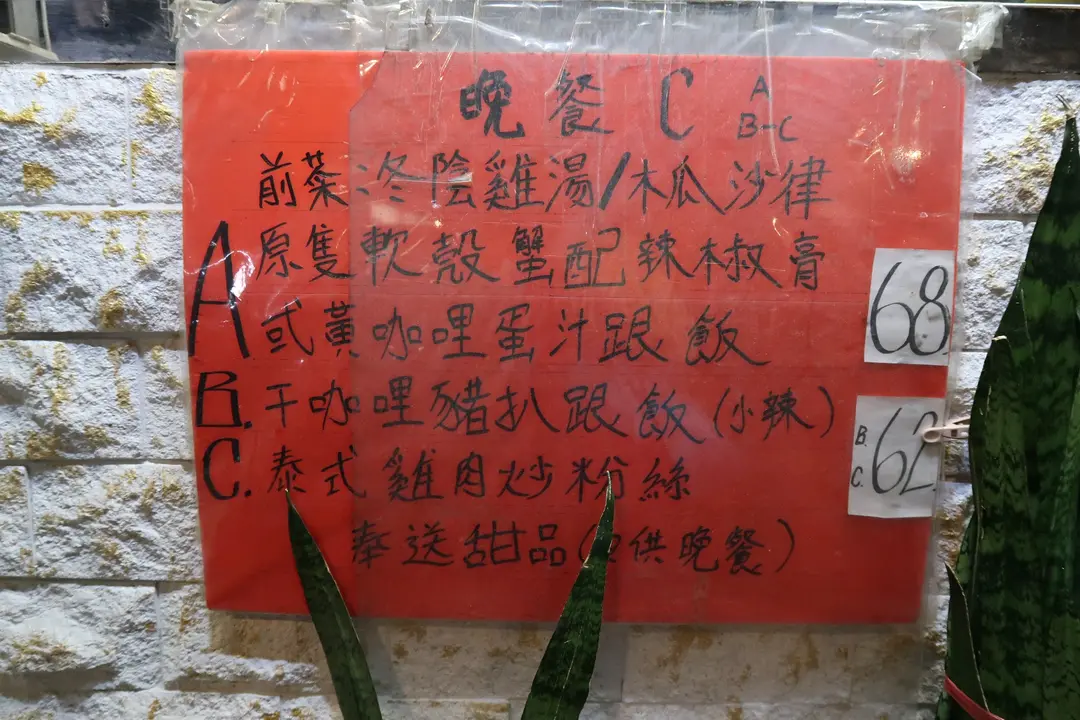 晚餐 C A
B-C
前菜 冬陰雞湯/木瓜沙律
A 原隻軟殼蟹配辣椒膏
或黃咖哩蛋汁跟飯 68
B. 干咖哩豬扒跟飯(小辣)
C. 泰式雞肉炒粉絲 B. C. 62
奉送甜品( 供晚餐)